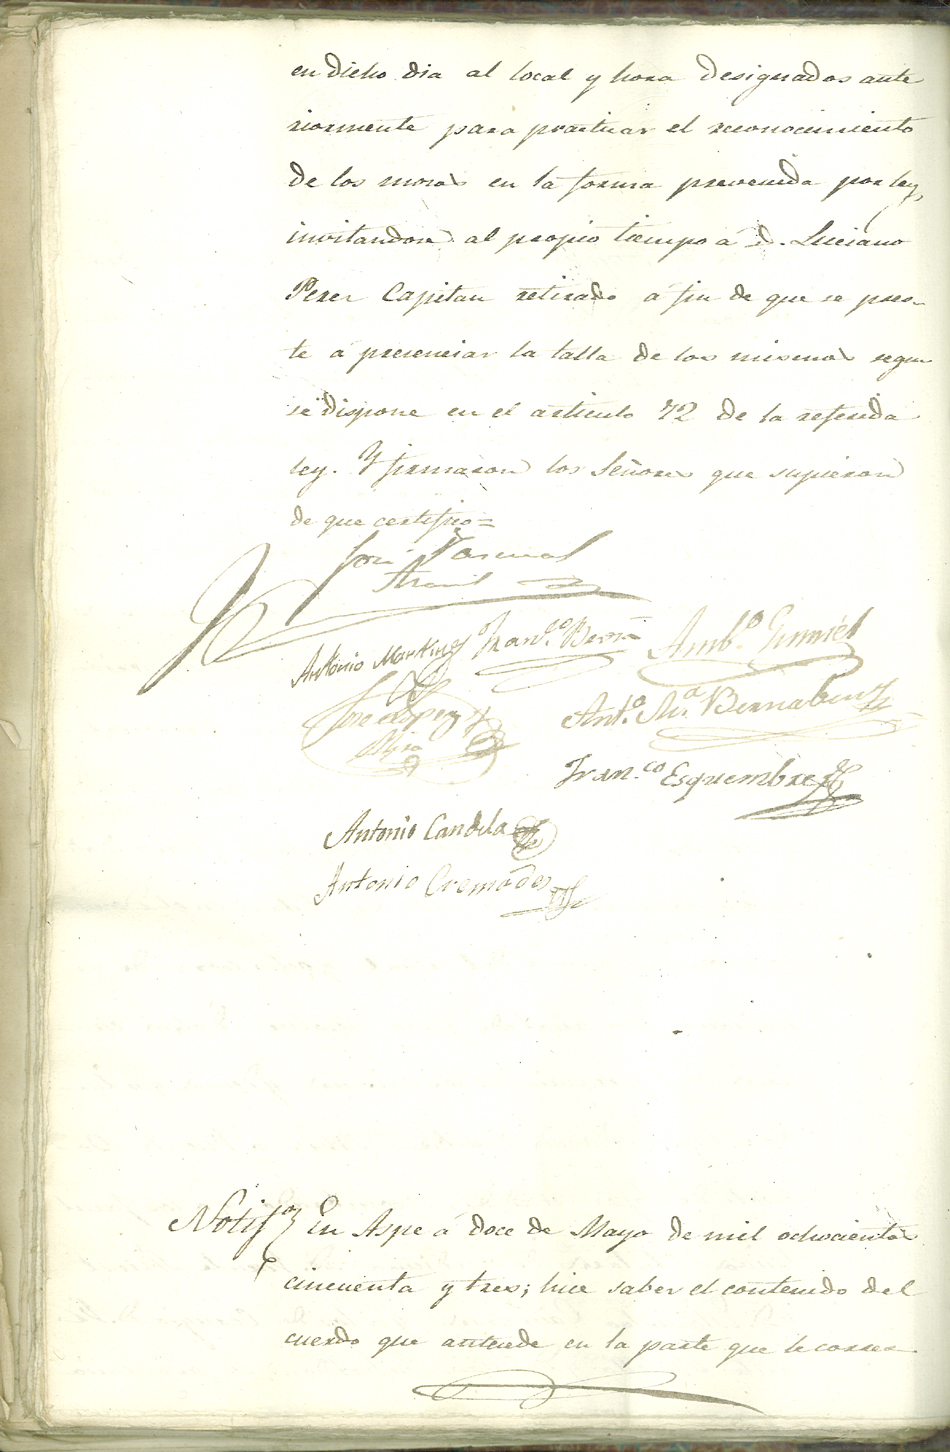 en dicho dia al local y hora designados ante
riormente para practicar el reconocimiento
de los mozos en la forma prevenida por ley,
invitandose al propio tiempo a D. Luciano
Perez Capitan retirado á fin de que se pres-
te á presenciar la talla de los mismos segun
se dispone en el articulo 72 de la referida
ley. Y firmaron los Señores que supieron
de que certifico=
José Pascual
Antonio Martinez Fran.co Berná Amb.o Gumiel
Jose Lopez
Ant.o M.a Bernabeu
Mira
Fran.co Esquembre
Antonio Candela
Antonio Cremádes
Notif.n En Aspe á doce de Mayo de mil ochocientos
cincuenta y tres; hice saber el contenido del
cuerdo que antecede en la parte que le corres-